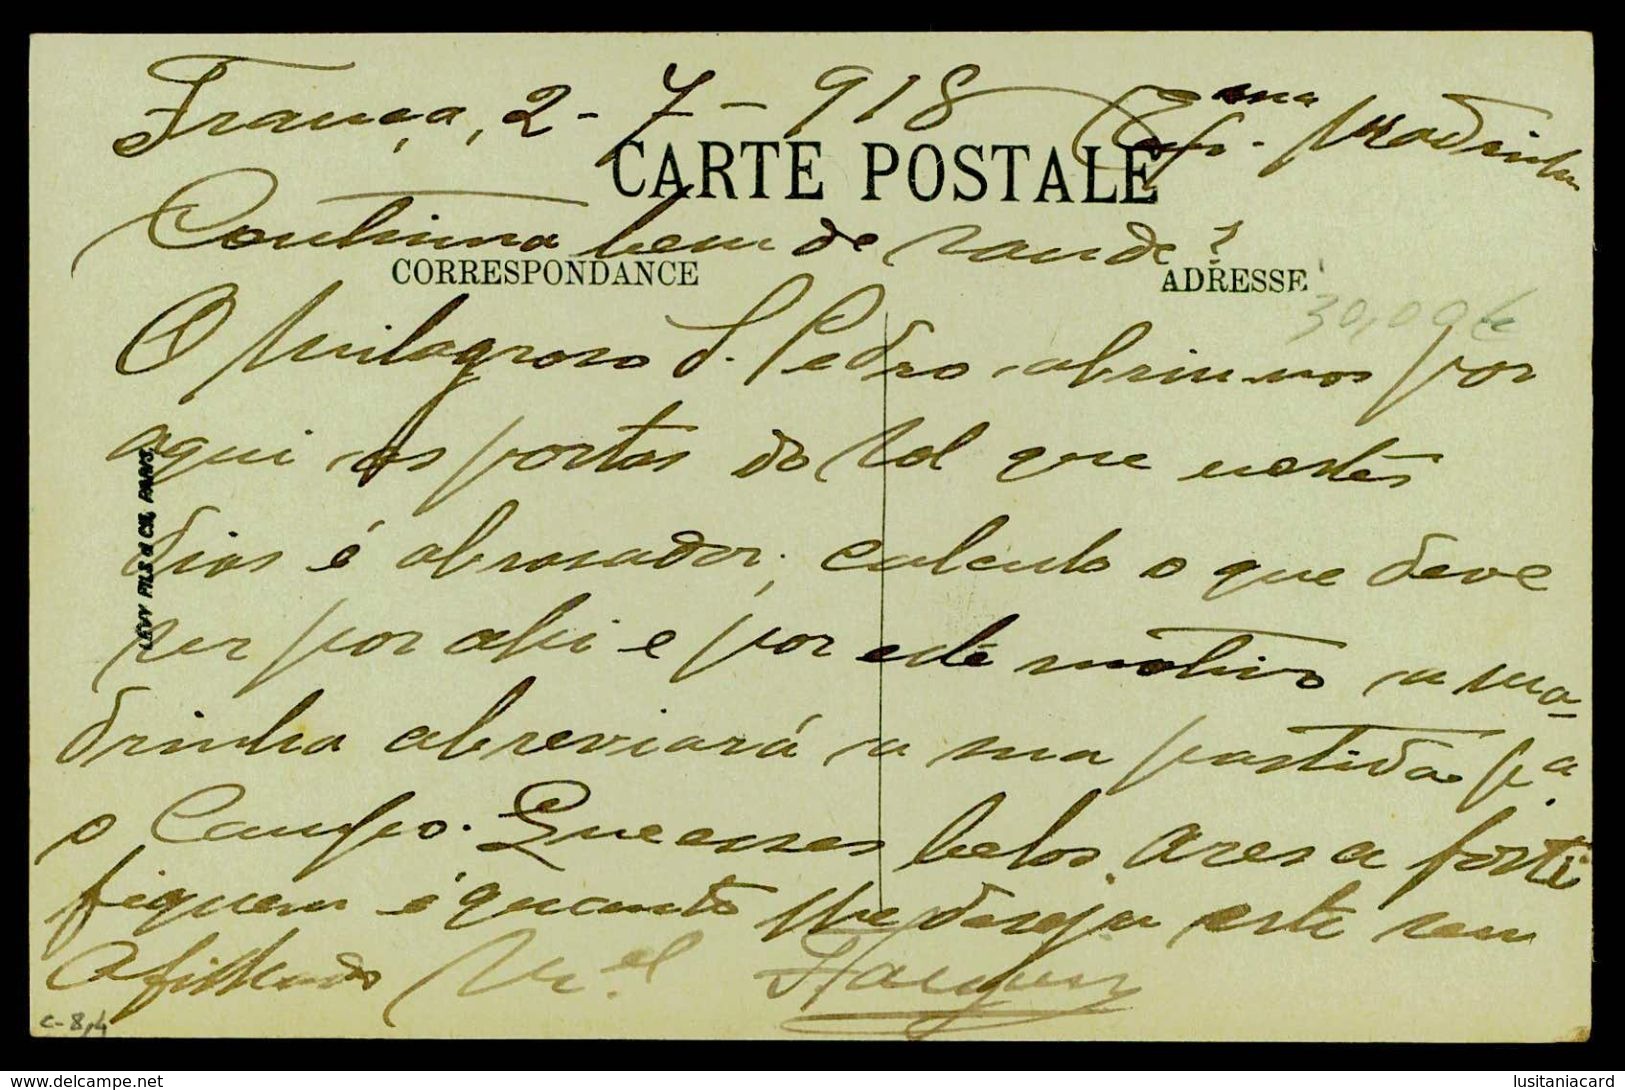 França, 2-7-918 Exma Sr. Madrinha
CARTE POSTALE
Continua bem de saude?
CORRESPONDANCE
ADRESSE
30,00€
O Milagroso S. Pedro abriu-nos por
aqui as portas do sol que nestes
dias é abrasador; calculo o que deve
ser por ahi e por este motivo a ma-
drinha abreviará a sua partida pa.
o Campo. Que esses belos ares a forti
fiquem é quanto lhe deseja este seu
Afilhado
LEVY FILS & CIE, PARIS.
c-8,4
www.delcampe.net
lusitaniacard